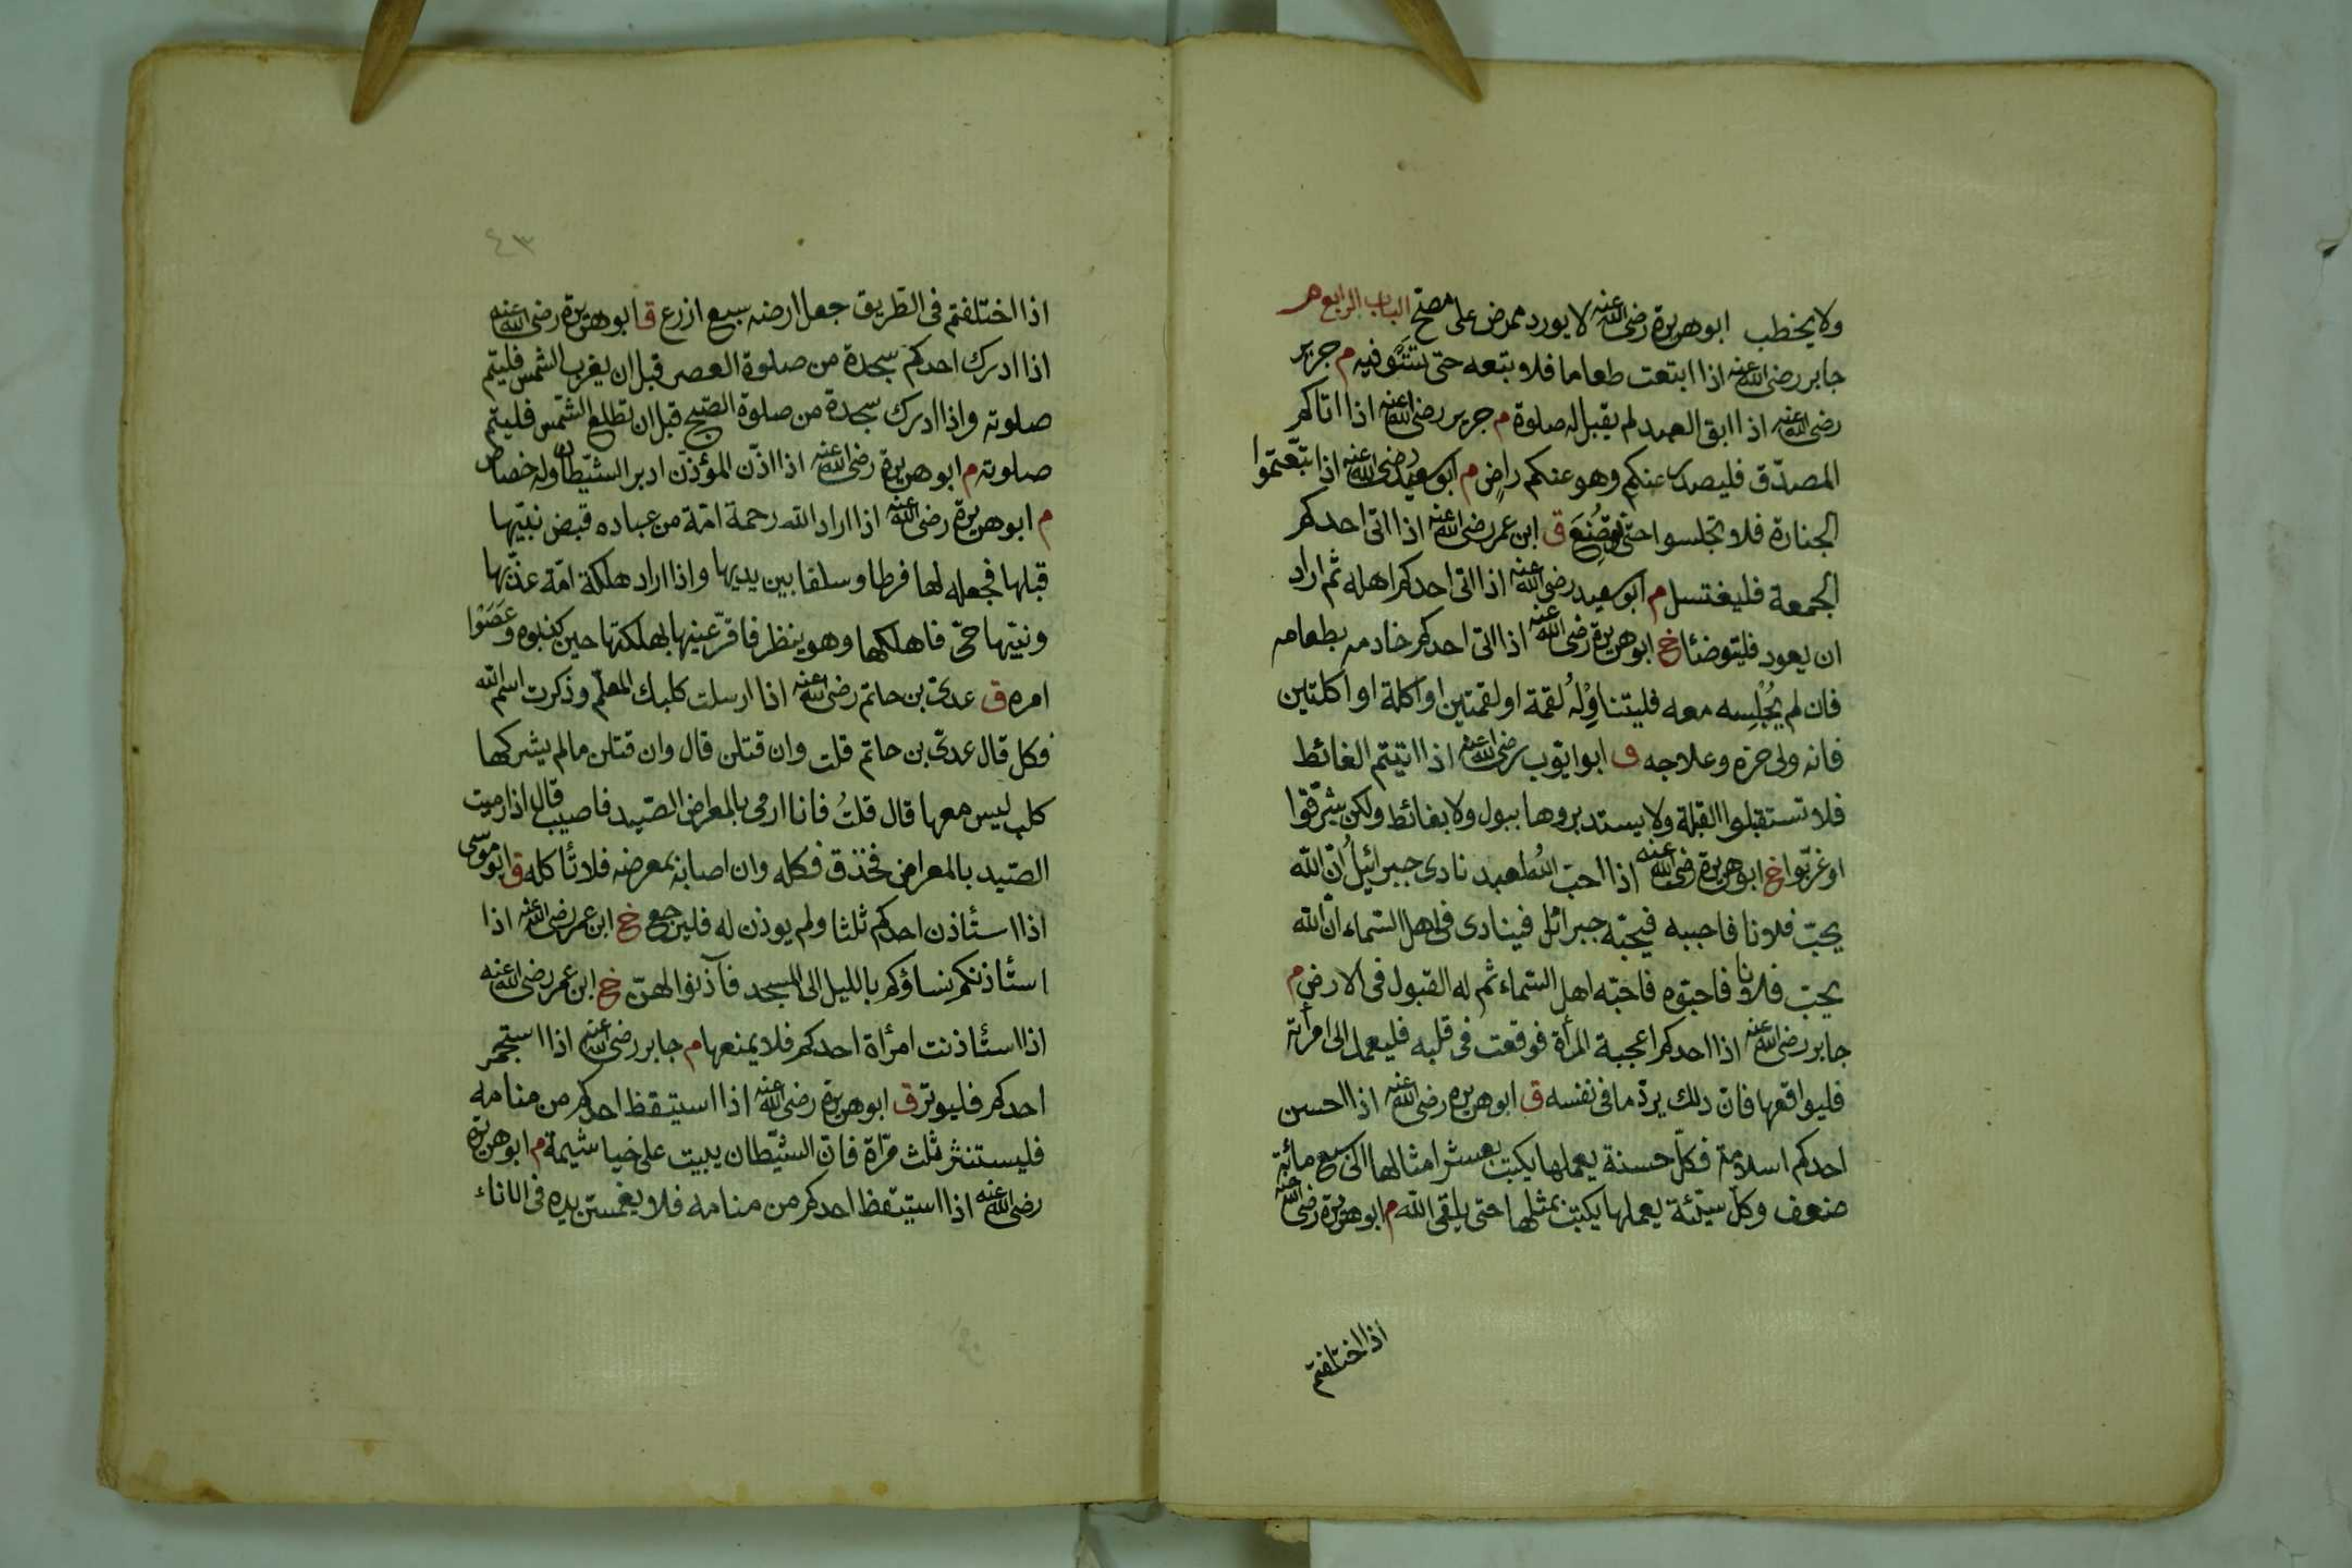 ولا يخطب ابوهريرة رضى الله عنه لا يورد ممرض على مصحّ الباب الرابع
جابر رضى الله عنه اذا ابتعت طعاما فلا تبعه حتى تستوفيه م جرير
رضى الله عنه اذا ابق العبد لم يقبل له صلوة م جرير رضى الله عنه اذا اتاكم
المصدّق فليصدر عنكم وهو عنكم راضٍ م ابو سعيد رضى الله عنه اذا تبّعتموا
الجنازة فلا تجلسوا حتى توضع ق ابن عمر رضى الله عنه اذا اتى احدكم
الجمعة فليغتسل م ابو سعيد رضى الله عنه اذا اتى احدكم اهله ثم اراد
ان يعود فليتوضئا خ ابوهريرة رضى الله عنه اذا اتى احدكم خادمه بطعامه
فان لم يُجْلِسه معه فليتناوِلْهُ لقمة او لقمتين او اكلة او اكلتين
فانه ولى حرّه وعلاجه ق ابو ايّوب رضى الله عنه اذا اتيتم الغائط
فلا تستقبلوا القبلة ولا يستدبروها ببول ولا بغائط ولكن شرّقوا
او غرّبوا خ ابوهريرة رضى الله عنه اذا احبّ الله العبد نادى جبرائيلُ انّ الله
يحبّ فلانا فاحببه فيحبّه جبرائل فينادى فى اهل السّماء انّ الله
يحبّ فلانا فاحبّوه فاحبّه اهل السّماء ثم له القبول فى الارض م
جابر رضى الله عنه اذا احدكم اعجبة المرأة فوقعت فى قلبه فليعمد الى امرأته
فليواقعها فانّ ذلك يردّ ما فى نفسه ق ابوهريره رضى الله عنه اذا احسن
احدكم اسلامه فكلّ حسنة يعملها يكتب بعشر امثالها الى سبع مائة
ضعف وكلّ سيّئة يعملها يكتب بمثلها حتى يلقى الله م ابوهريرة رضى الله عنه
اذا اختلفتم
٤٣
اذا اختلفتم فى الطريق جعل ارضه سبع ازرع ق ابوهريرة رضى الله عنه
اذا ادرك احدكم سجدة من صلوة العصر قبل ان يغرب الشمس فليتم
صلوته واذا ادرك سجدة من صلوة الصّبح قبل ان تطلع الشّمس فليتمّ
صلوته م ابوهريرة رضى الله عنه اذا اذّن المؤذّن ادبر الشّيطان وله خصاص
م ابوهريرة رضى الله عنه اذا اراد الله رحمة امّة من عباده قبض نبيّها
قبلها فجعله لها فرطا وسلفا بين يديها واذا اراد هلكة امّة عذّبها
ونبيّها حىّ فاهلكها وهو ينظر فاقرّ عينها بهلكتها حين كذبوه وعَصَوْا
امره ق عدىّ بن حاتم رضى الله عنه اذا ارسلت كلبك المعلّم وذكرت اسم الله
فكل قال عدىّ بن حاتم قلت وان قتلن قال وان قتلن ما لم يشركها
كلب ليس معها قال قلتُ فانا ارمى بالمعراض الصّيد فاصيب قال اذا رميت
الصّيد بالمعراض فخذق فكله وان اصابه بمعرضه فلا تأكله ق ابو موسى
اذا استأذن احدكم ثلثا ولم يوذن له فليرجع خ ابن عمر رضى الله عنه اذا
استأذنكم نساؤكم بالليل الى المسجد فآذنوا لهنّ خ ابن عمر رضى الله عنه
اذا استأذنت امرأة احدكم فلا يمنعها م جابر رضى الله عنه اذا استجمر
احدكم فليوتر ق ابوهريرة رضى الله عنه اذا استيقظ احدكم من منامه
فليستنثر ثلث مرّاة فانّ الشّيطان يبيت على خياشيمة م ابوهريرة
رضى الله عنه اذا استيقظ احدكم من منامه فلا يغمسنّ يده فى الاناء